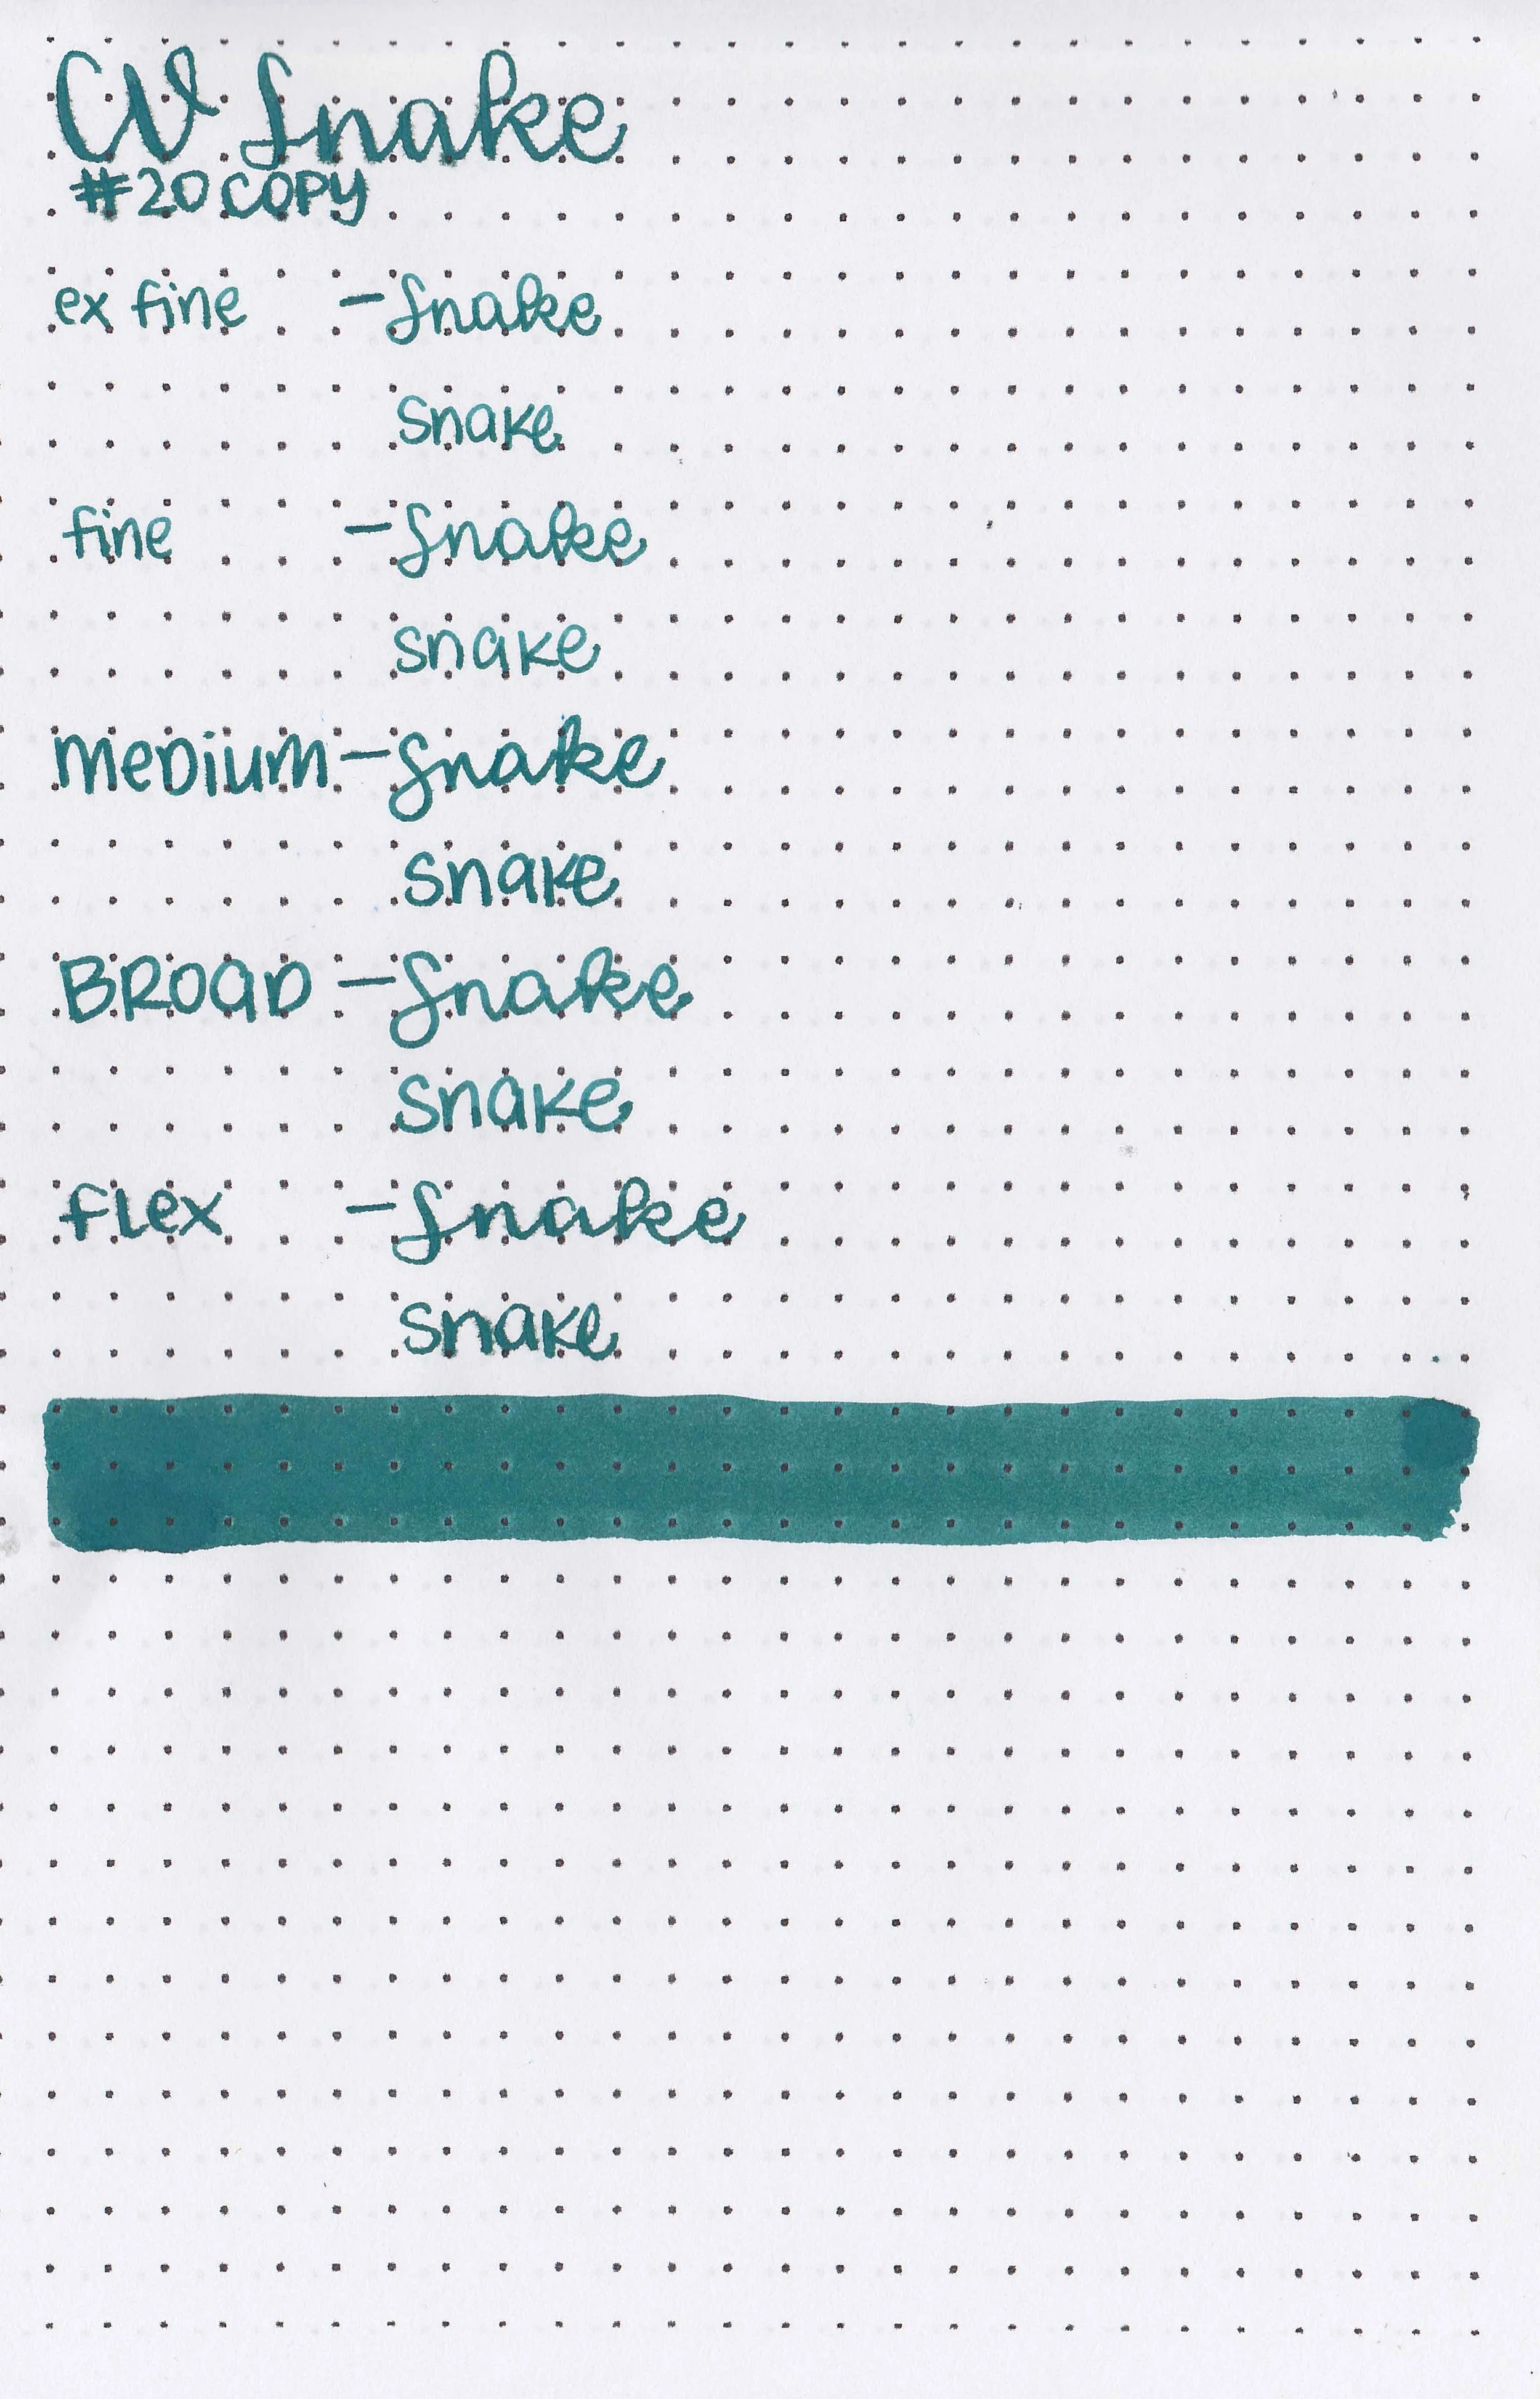 CV Snake
#20 COPY
ex fine - Snake
snake
fine - Snake
snake
MeDium - Snake
snake
BROaD - Snake
snake
flex - Snake
snake